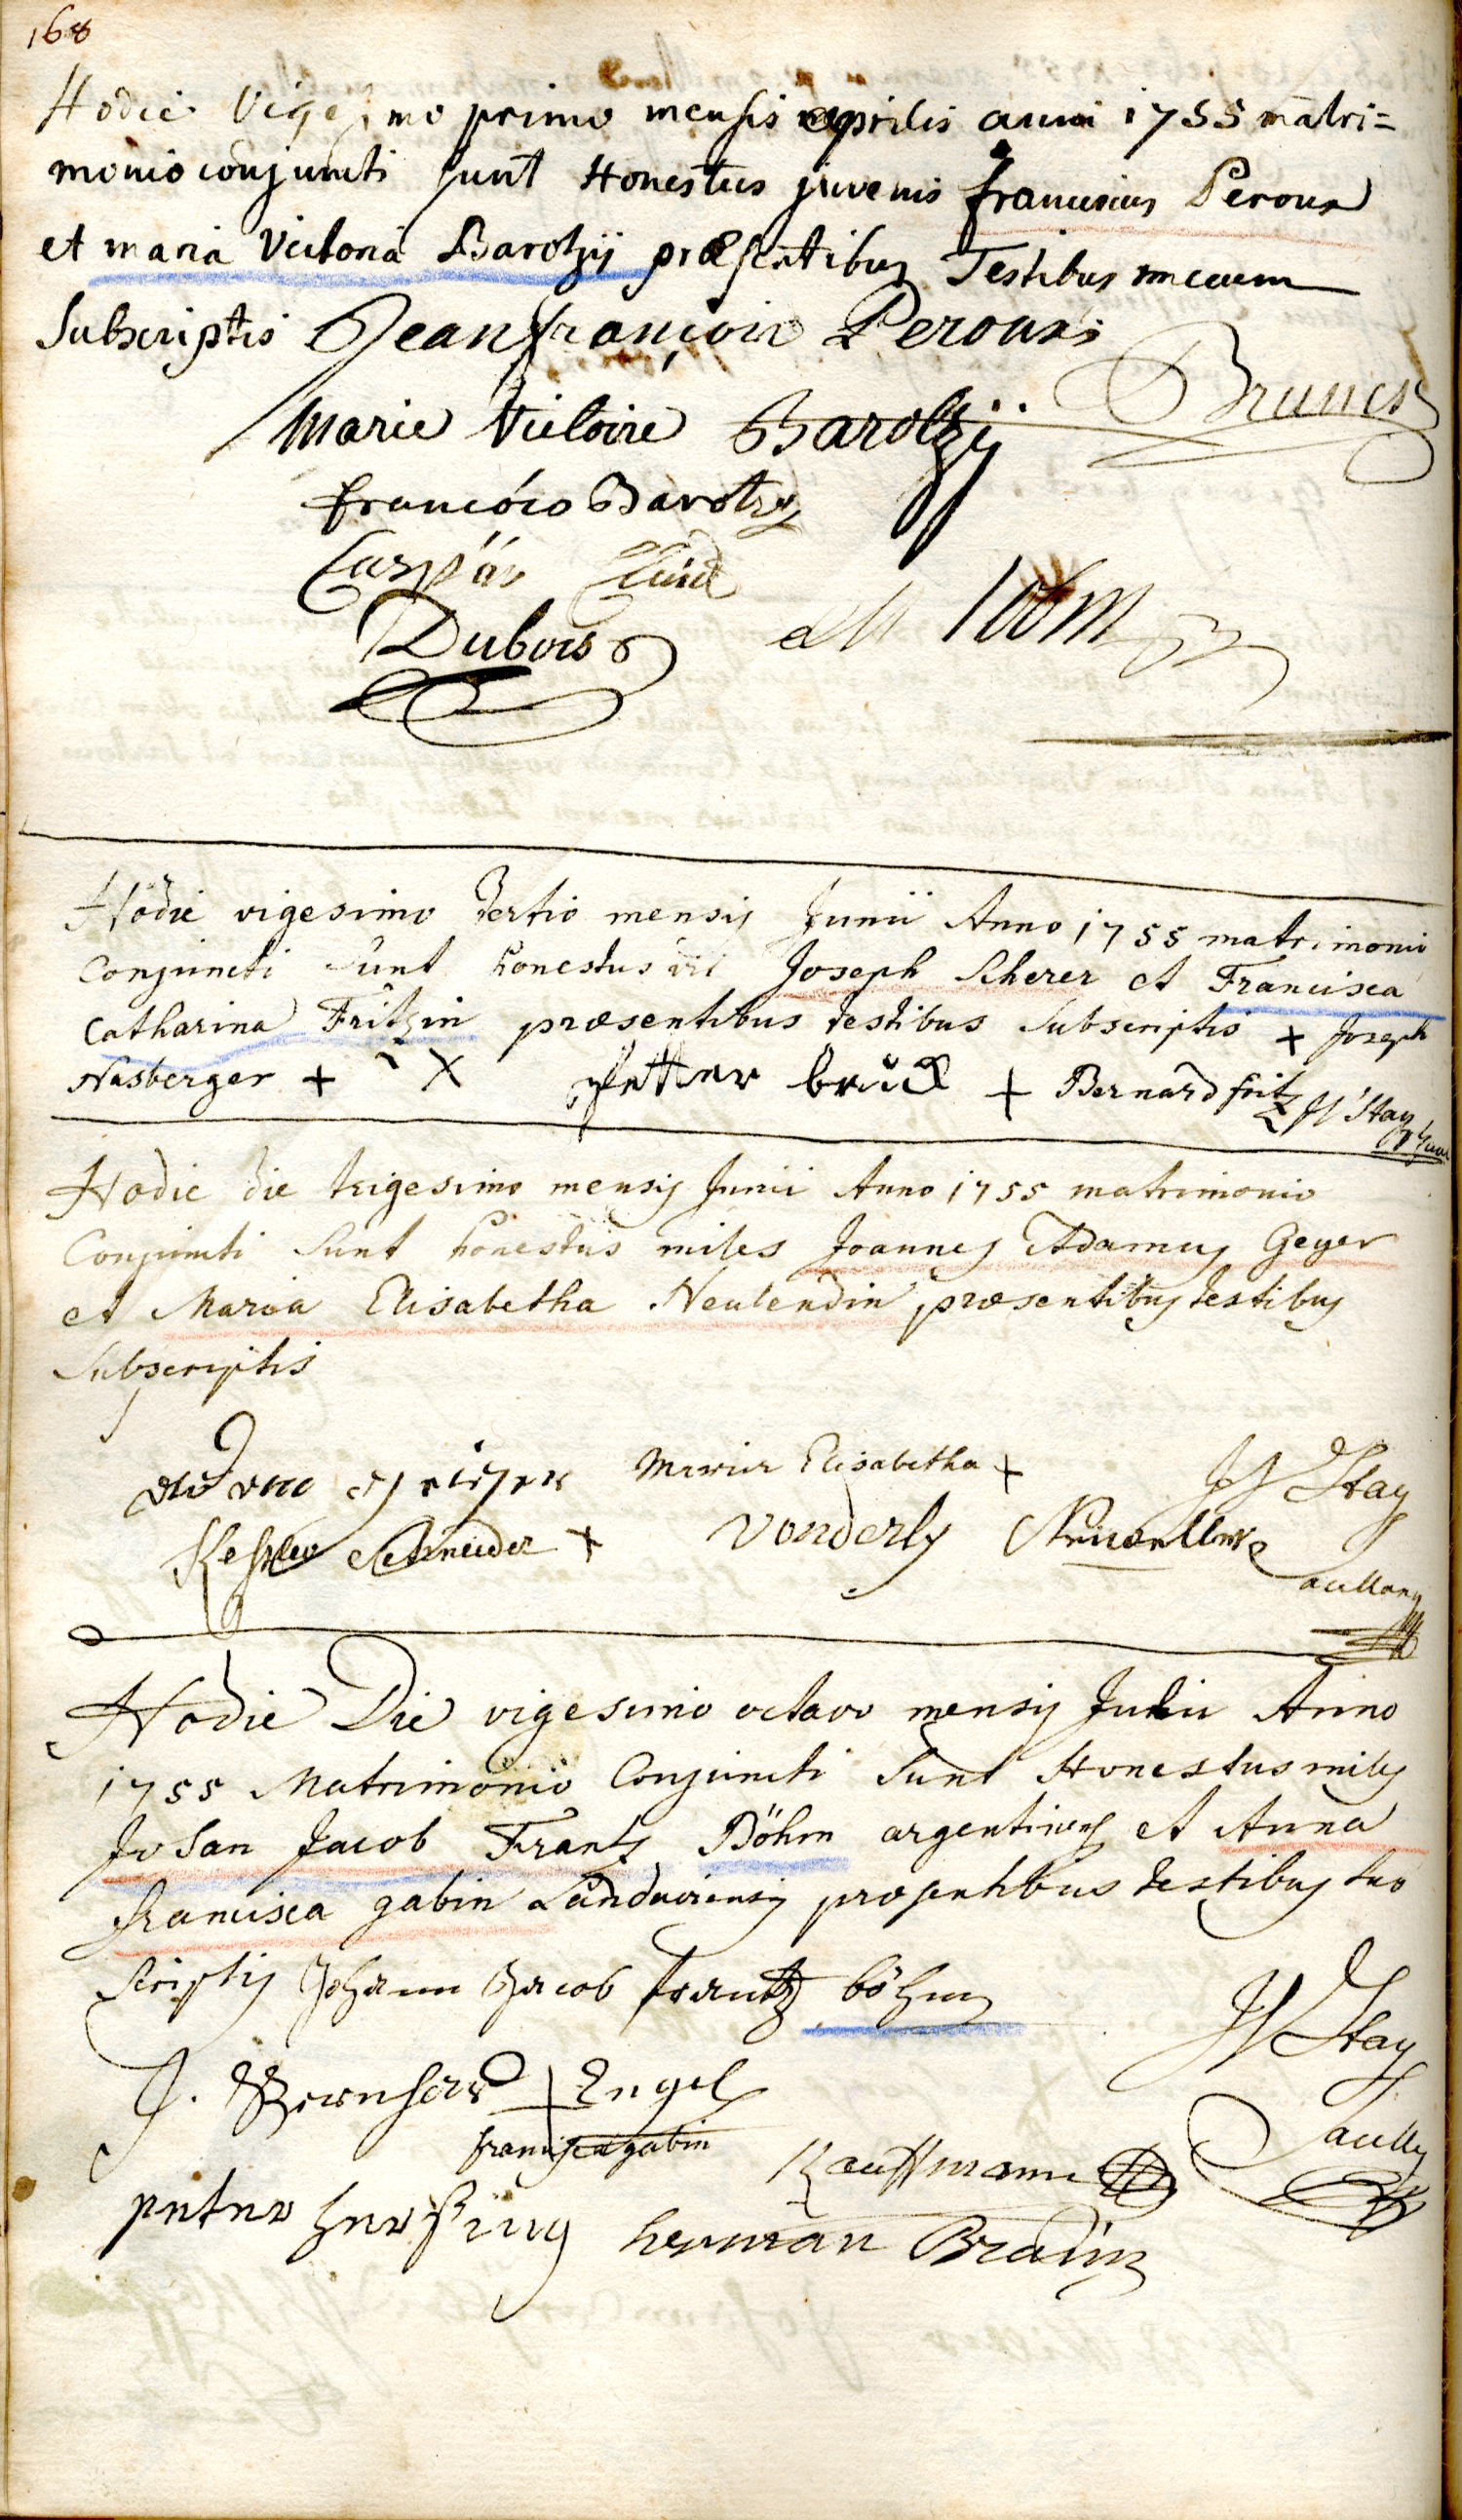 168
Hodie Vigesimo primo mensis aprilis anni 1755 matri=
monio conjuncti sunt Honestus juvenis franciscus Peroux
et maria Victoria Barotzÿ præsentibus Testibus mecum
Subscriptis Jean françois Peroux
Marie Victoire Barotzÿ
françois Barotzy
Caspar
Dubois
Hodie vigesimo tertio mensis Junii Anno 1755 matrimonio
Conjuncti sunt honestus vir Joseph Scherer et Francisca
Catharina Fritzin præsentibus testibus Subscriptis + Joseph
Nasberger + X petter brück + Bernard fritz JJ Hay
Hodie die trigesimo mensis Junii Anno 1755 matrimonio
Conjuncti Sunt honestus miles Joannes Adamus Geyer
et Maria Elisabetha Neulendin præsentibus testibus
Subscriptis
Maria Elisabetha + JJ Hay
Kessler Schneider + Vonderly
Hodie Die vigesimo octavo mensis Julii Anno
1755 Matrimonio Conjuncti Sunt Honestus miles
Johan Jacob Frantz Böhm argentinens et Anna
francisca gabin Landaviensis præsentibus testibus sub
scriptis Johann Jacob frantz böhm
JJ Hay
J. Bernhard + Engel
francisca gabin
Kauffmann
peter herssing herman Braun